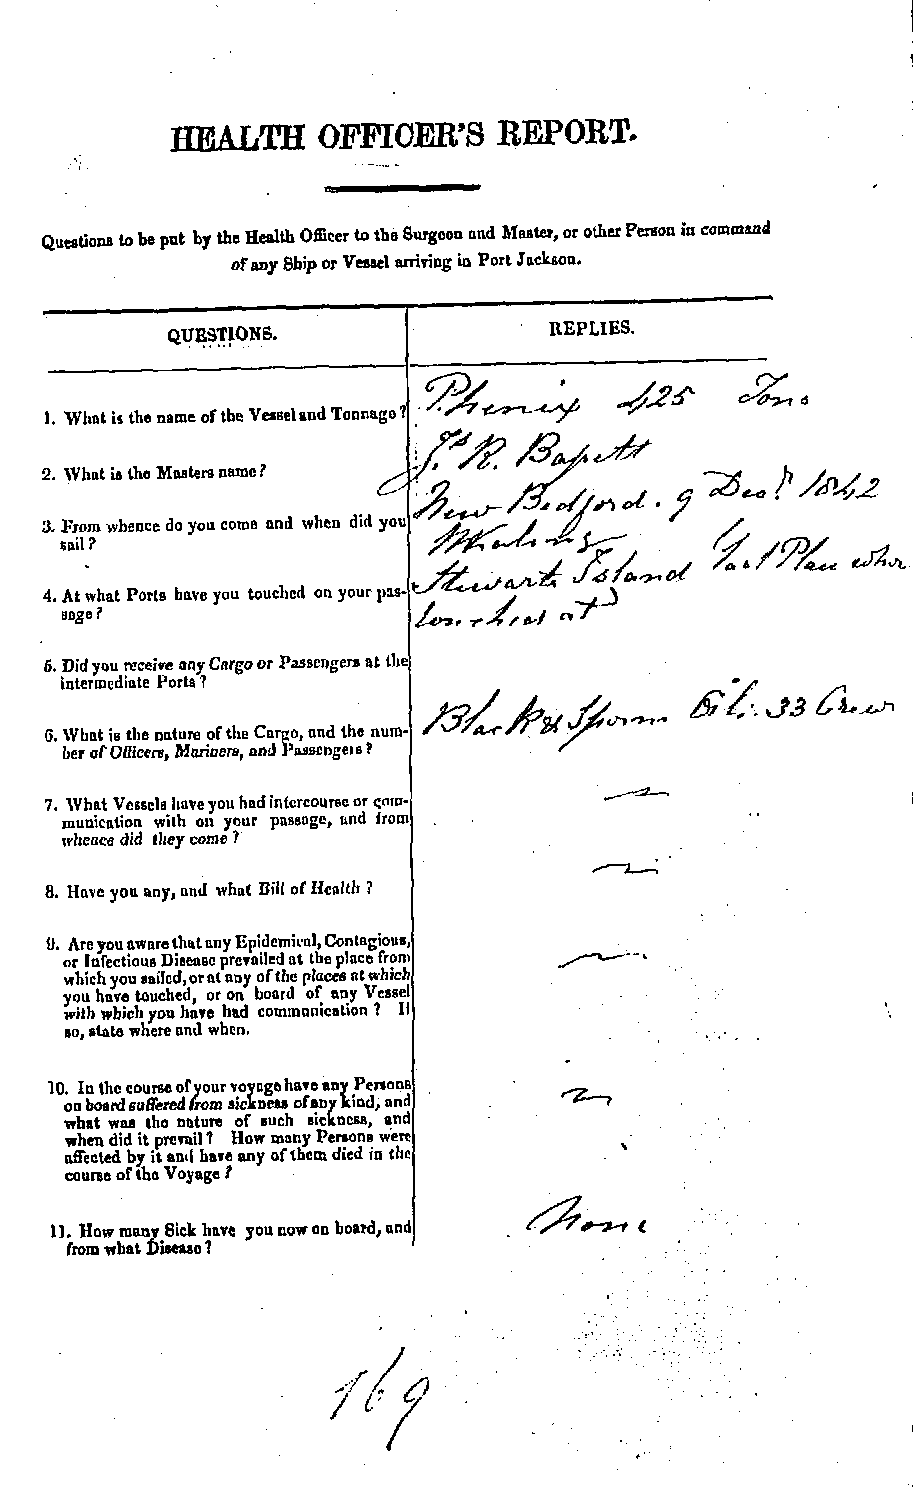 HEALTH OFFICER'S REPORT.
Questions to be put by the Health Officer to the Surgeon and Master, or other Person in command
of any Ship or Vessel arriving in Port Jackson.
QUESTIONS. REPLIES.
1. What is the name of the Vessel and Tonnage? Phenix 425 Tons
2. What is the Masters name? R.
3. From whence do you come and when did you New Bedford. 9 Decr. 1842
sail? Whaling
4. At what Ports have you touched on your pas- Stewarts Island last Place
sage? touched at
5. Did you receive any Cargo or Passengers at the
intermediate Ports?
6. What is the nature of the Cargo, and the num- Black & Sperm Oil. 33 Crew
ber of Officers, Mariners, and Passengers?
7. What Vessels have you had intercourse or com-
munication with on your passage, and from
whence did they come?
8. Have you any, and what Bill of Health?
9. Are you aware that any Epidemical, Contagious,
or Infectious Disease prevailed at the place from
which you sailed, or at any of the places at which
you have touched, or on board of any Vessel
with which you have had communication? If
so, state where and when.
10. In the course of your voyage have any Persons
on board suffered from sickness of any kind, and
what was the nature of such sickness, and
when did it prevail? How many Persons were
affected by it and have any of them died in the
course of the Voyage?
11. How many Sick have you now on board, and None
from what Disease?
169